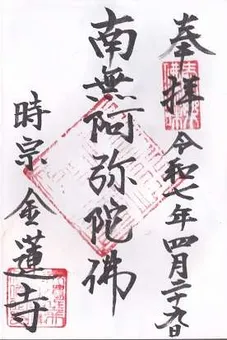 奉拝
令和七年四月二十九日
南無阿弥陀佛
時宗 金蓮寺